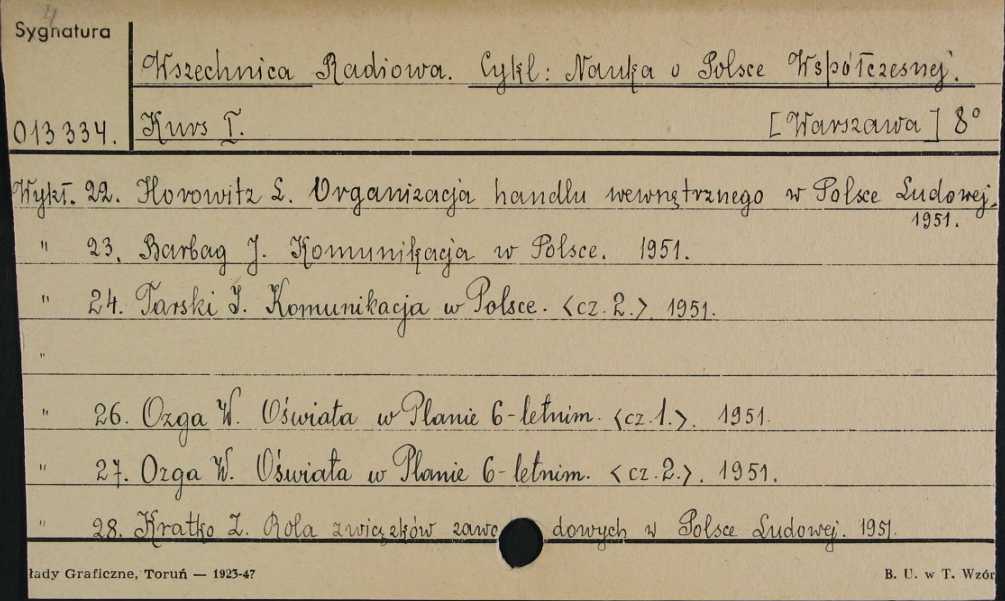 4
Sygnatura
Wszechnica Radiowa. Cykl: Nauka o Polsce Współczesnej.
013334. Kurs I. [Warszawa] 8°
Wykł. 22. Horowitz L. Organizacja handlu wewnętrznego w Polsce Ludowej.
1951.
" 23. Barbag J. Komunikacja w Polsce. 1951.
" 24. Tarski I. Komunikacja w Polsce. <cz. 2.> 1951.
"
" 26. Ozga W. Oświata w Planie 6-letnim. <cz. 1.>. 1951.
" 27. Ozga W. Oświata w Planie 6-letnim. <cz. 2.>. 1951.
" 28. Kratko Z. Rola związków zawodowych w Polsce Ludowej. 1951.
łady Graficzne, Toruń — 1923-47 B. U. w T. Wzór